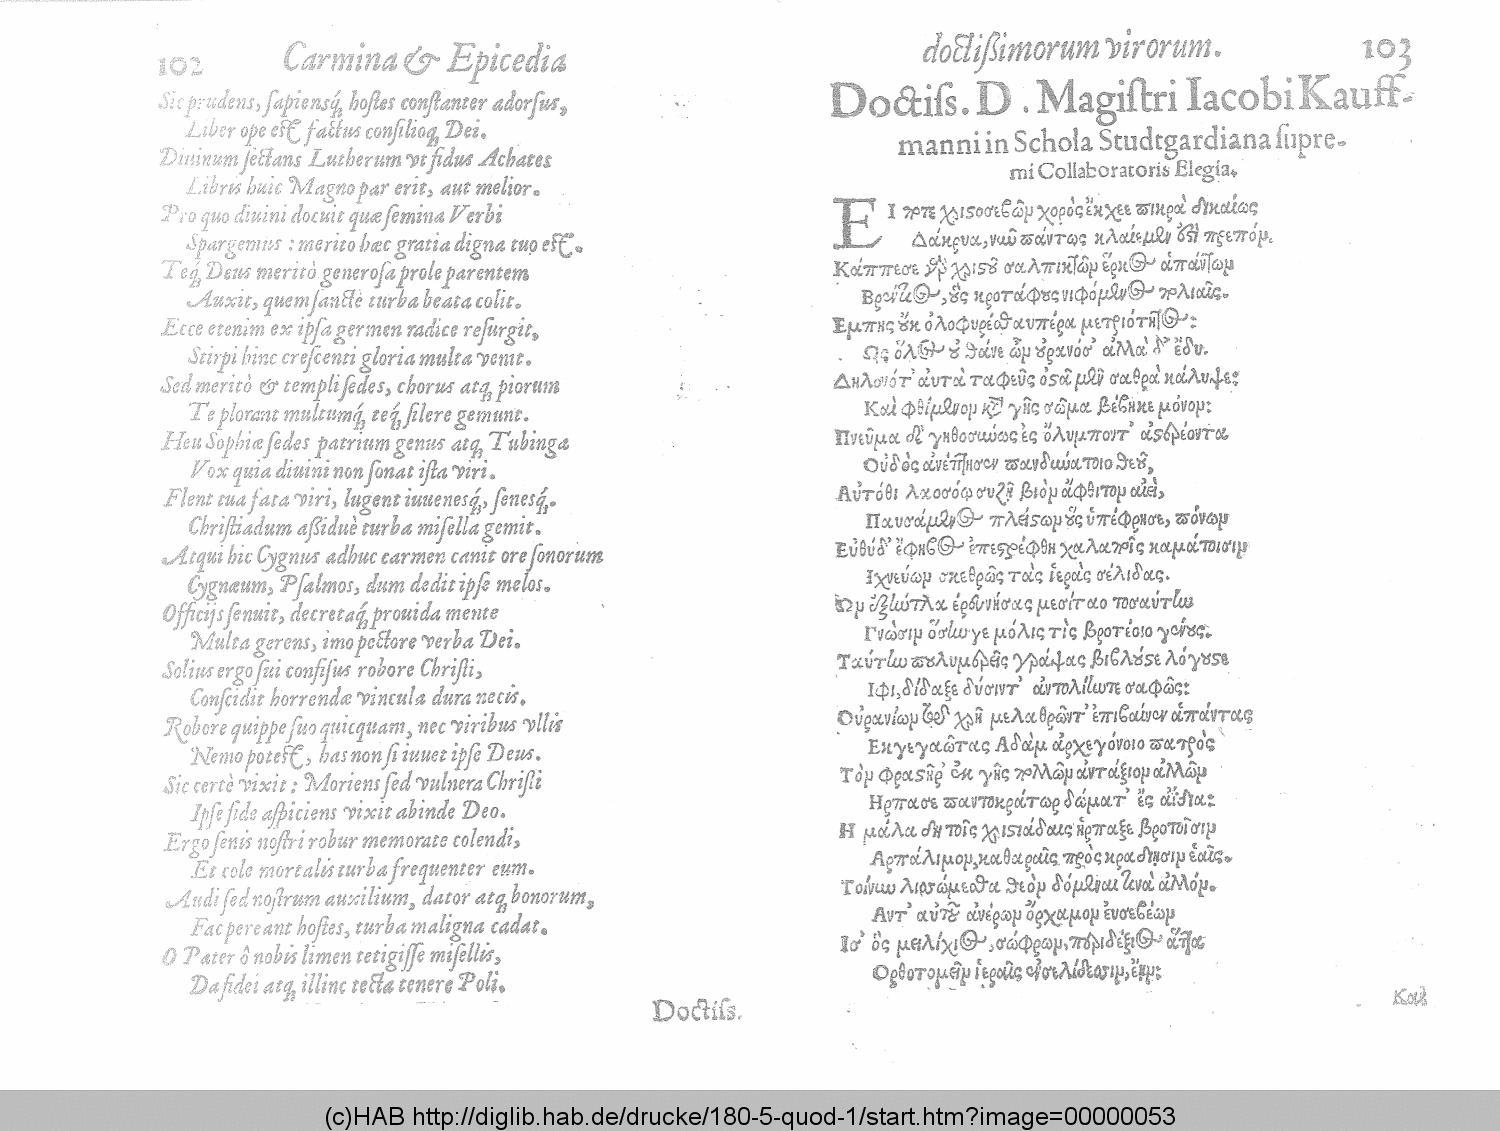 102 Carmina & Epicedia
Sic prudens, ſapiensq́; hoſtes conſtanter adorſus,
Liber ope eſt factus conſilioq; Dei.
Diuinum ſectans Lutherum vt fidus Achates
Libris huic Magno par erit, aut melior.
Pro quo diuini docuit quæ ſemina Verbi
Spargemus : merito hæc gratia digna tuo eſt.
Teq́; Deus meritò generoſa prole parentem
Auxit, quem ſanctè turba beata colit.
Ecce etenim ex ipſa germen radice reſurgit,
Stirpi hinc creſcenti gloria multa venit.
Sed meritò & templi ſedes, chorus atq; piorum
Te plorant multumq́; teq́; ſilere gemunt.
Heu Sophiæ ſedes patrium genus atq; Tubinga
Vox quia diuini non ſonat iſta viri.
Flent tua fata viri, lugent iuuenesq́;, ſenesq́;.
Chriſtiadum aßiduè turba miſella gemit.
Atqui hic Cygnus adhuc carmen canit ore ſonorum
Cygnæum, Pſalmos, dum dedit ipſe melos.
Officijs ſenuit, decretaq́; prouida mente
Multa gerens, imo pectore verba Dei.
Solius ergo ſui confiſus robore Chriſti,
Conſcidit horrendæ vincula dura necis.
Robore quippe ſuo quicquam, nec viribus vllis
Nemo poteſt, has non ſi iuuet ipſe Deus.
Sic certè vixit : Moriens ſed vulnera Chriſti
Ipſe fide aſpiciens vixit abinde Deo.
Ergo ſenis noſtri robur memorate colendi,
Et cole mortalis turba frequenter eum.
Audi ſed noſtrum auxilium, dator atq; bonorum,
Fac pereant hoſtes, turba maligna cadat.
O Pater ô nobis limen tetigiſſe miſellis,
Da fidei atq; illinc tecta tenere Poli.
Doctiſs.
doctißimorum virorum. 103
Doctiſs. D. Magiſtri Iacobi Kauff-
manni in Schola Studtgardiana ſupre-
mi Collaboratoris Elegia.
ΕΙ ποτε χριστοσεβῶν χορὸς ἔκχεε πικρὰ δικαίως
Δάκρυα, νῦν πάντως κλαίεμεν ἐστὶ πρεπόν.
Κάππεσε γὰρ χριστοῦ σαλπικτῶν ἕρκος ἁπάντων
κροτάφους νιφόμενος πολιαῖς.
Εμπης οὐκ ὀλοφυρέσθαι ὑπέρα μετριότητος:
Ως ὅλος οὐ θάνε ὢν οὐρανόσ' ἀλλὰ δ' ἔδυ.
Δηλονότ' αὐτὰ ταφεῦς ὀσᾶ μὲν σαθρὰ κάλυψε:
Καὶ φθίμενον κατὰ γῆς σῶμα βέβηκε μόνον:
Πνεῦμα δὲ γηθοσύνως ἐς ὄλυμποντ' ἀστερέοντα
Οὐδὸς ἀνέτησεν πανδώατοιο θεοῦ,
Αὐτόθι λαοσόῳ συζῇ βιὸν ἄφθιτον αἰεὶ,
Παυσάμενος πλείστων οὓς ὑπέφρησε, πόνων
Εὐθύδ' ἔφηβος ἐπεστρέφθη χαλατοῖς καμάτοισιν
Ιχνεύων σκεθρῶς τὰς ἱερὰς σέλιδας.
Ὧν ἐξαίτλα ἐρευνήσας μεσίταο τοσαύτην
Γνῶσιν ὅσην γε μόλις τὶς βροτέοιο γένους.
Ταύτην πουλυμερεῖς γράψας βίβλουστε λόγουστε
Ιφι, δίδαξε δύσιντ' ἀντολίωτε σαφῶς:
Οὐρανίων ὅταν χρῆ μελαθρῶντ' ἐπιβαίνεν ἁπάντας
Εκγεγαῶτας Αδὰμ ἀρχεγόνοιο πατρός
Τὸν φραστῆρ' ἐκ γῆς πολλῶν ἀντάξιον ἀλλῶν
Ηρπασε παντοκράτωρ δώματ' ἐς ἀΐδια:
Η μάλα δὴ τοῖς χριστιάδαις ἥρπαξε βροτοῖσιν
Αρπάλιμον, καθαραῖς πρὸς κραδίῃσιν ἑαῖς.
Τοίνυν λισσώμεσθα θεὸν δόμεναι τινὰ ἀλλόν.
Αντ' αὐτοῦ ἀνέρων ὄρχαμον ἐυσεβέων
Ισ' ὃς μειλίχιος, σώφρων, πουριδέξιος
Ορθοτομεῖν ἱεραῖς
Καὶ
(c)HAB http://diglib.hab.de/drucke/180-5-quod-1/start.htm?image=00000053